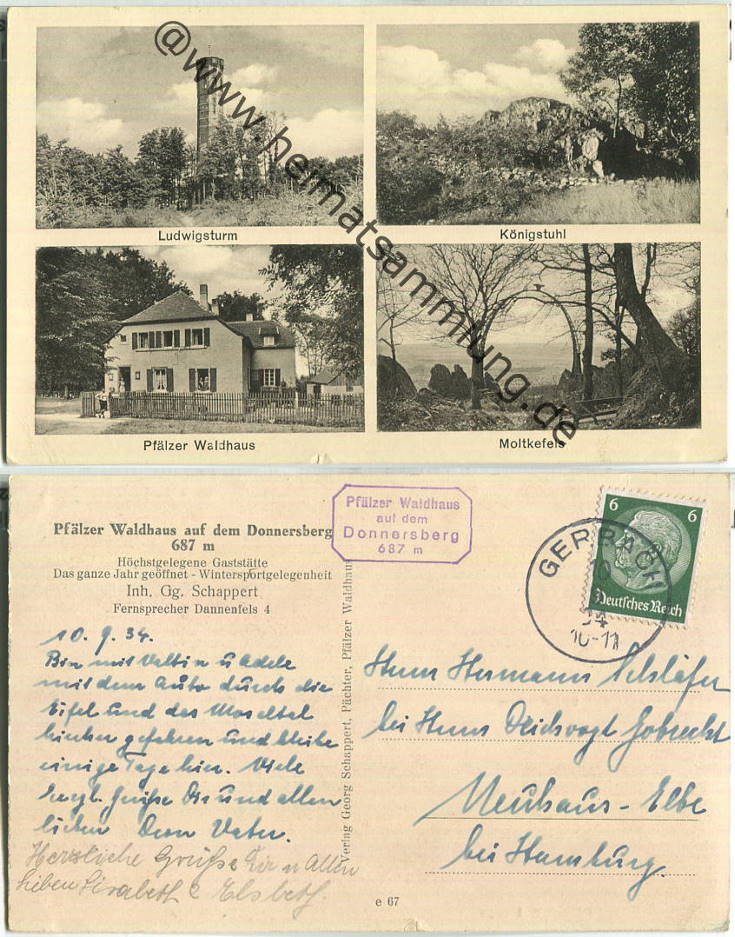 @www.heimatsammlung.de
Ludwigsturm
Königstuhl
Pfälzer Waldhaus
Moltkefels
Pfälzer Waldhaus auf dem Donnersberg
687 m
Höchstgelegene Gaststätte
Das ganze Jahr geöffnet - Wintersportgelegenheit
Inh. Gg. Schappert
Fernsprecher Dannenfels 4
Pfälzer Waldhaus
auf dem
Donnersberg
687 m
6 6
Deutsches Reich
GERBACH
10
34
10-11
10. 9. 34.
Bin mit Valtin u Adele
mit dem Auto durch die
Eifel und das Moseltal
hierher gefahren und bleibe
einige Tage hier. Viele
herzl. Grüße Dir und allen
lieben Dein Vater.
Herzliche Grüße Dir u Allen
lieben Elsbeth.
Verlag Georg Schappert, Pächter, Pfälzer Waldhaus
Herrn Hermann Schläfer
bei Herrn
Neuhaus-Elbe
bei Hamburg.
e 67